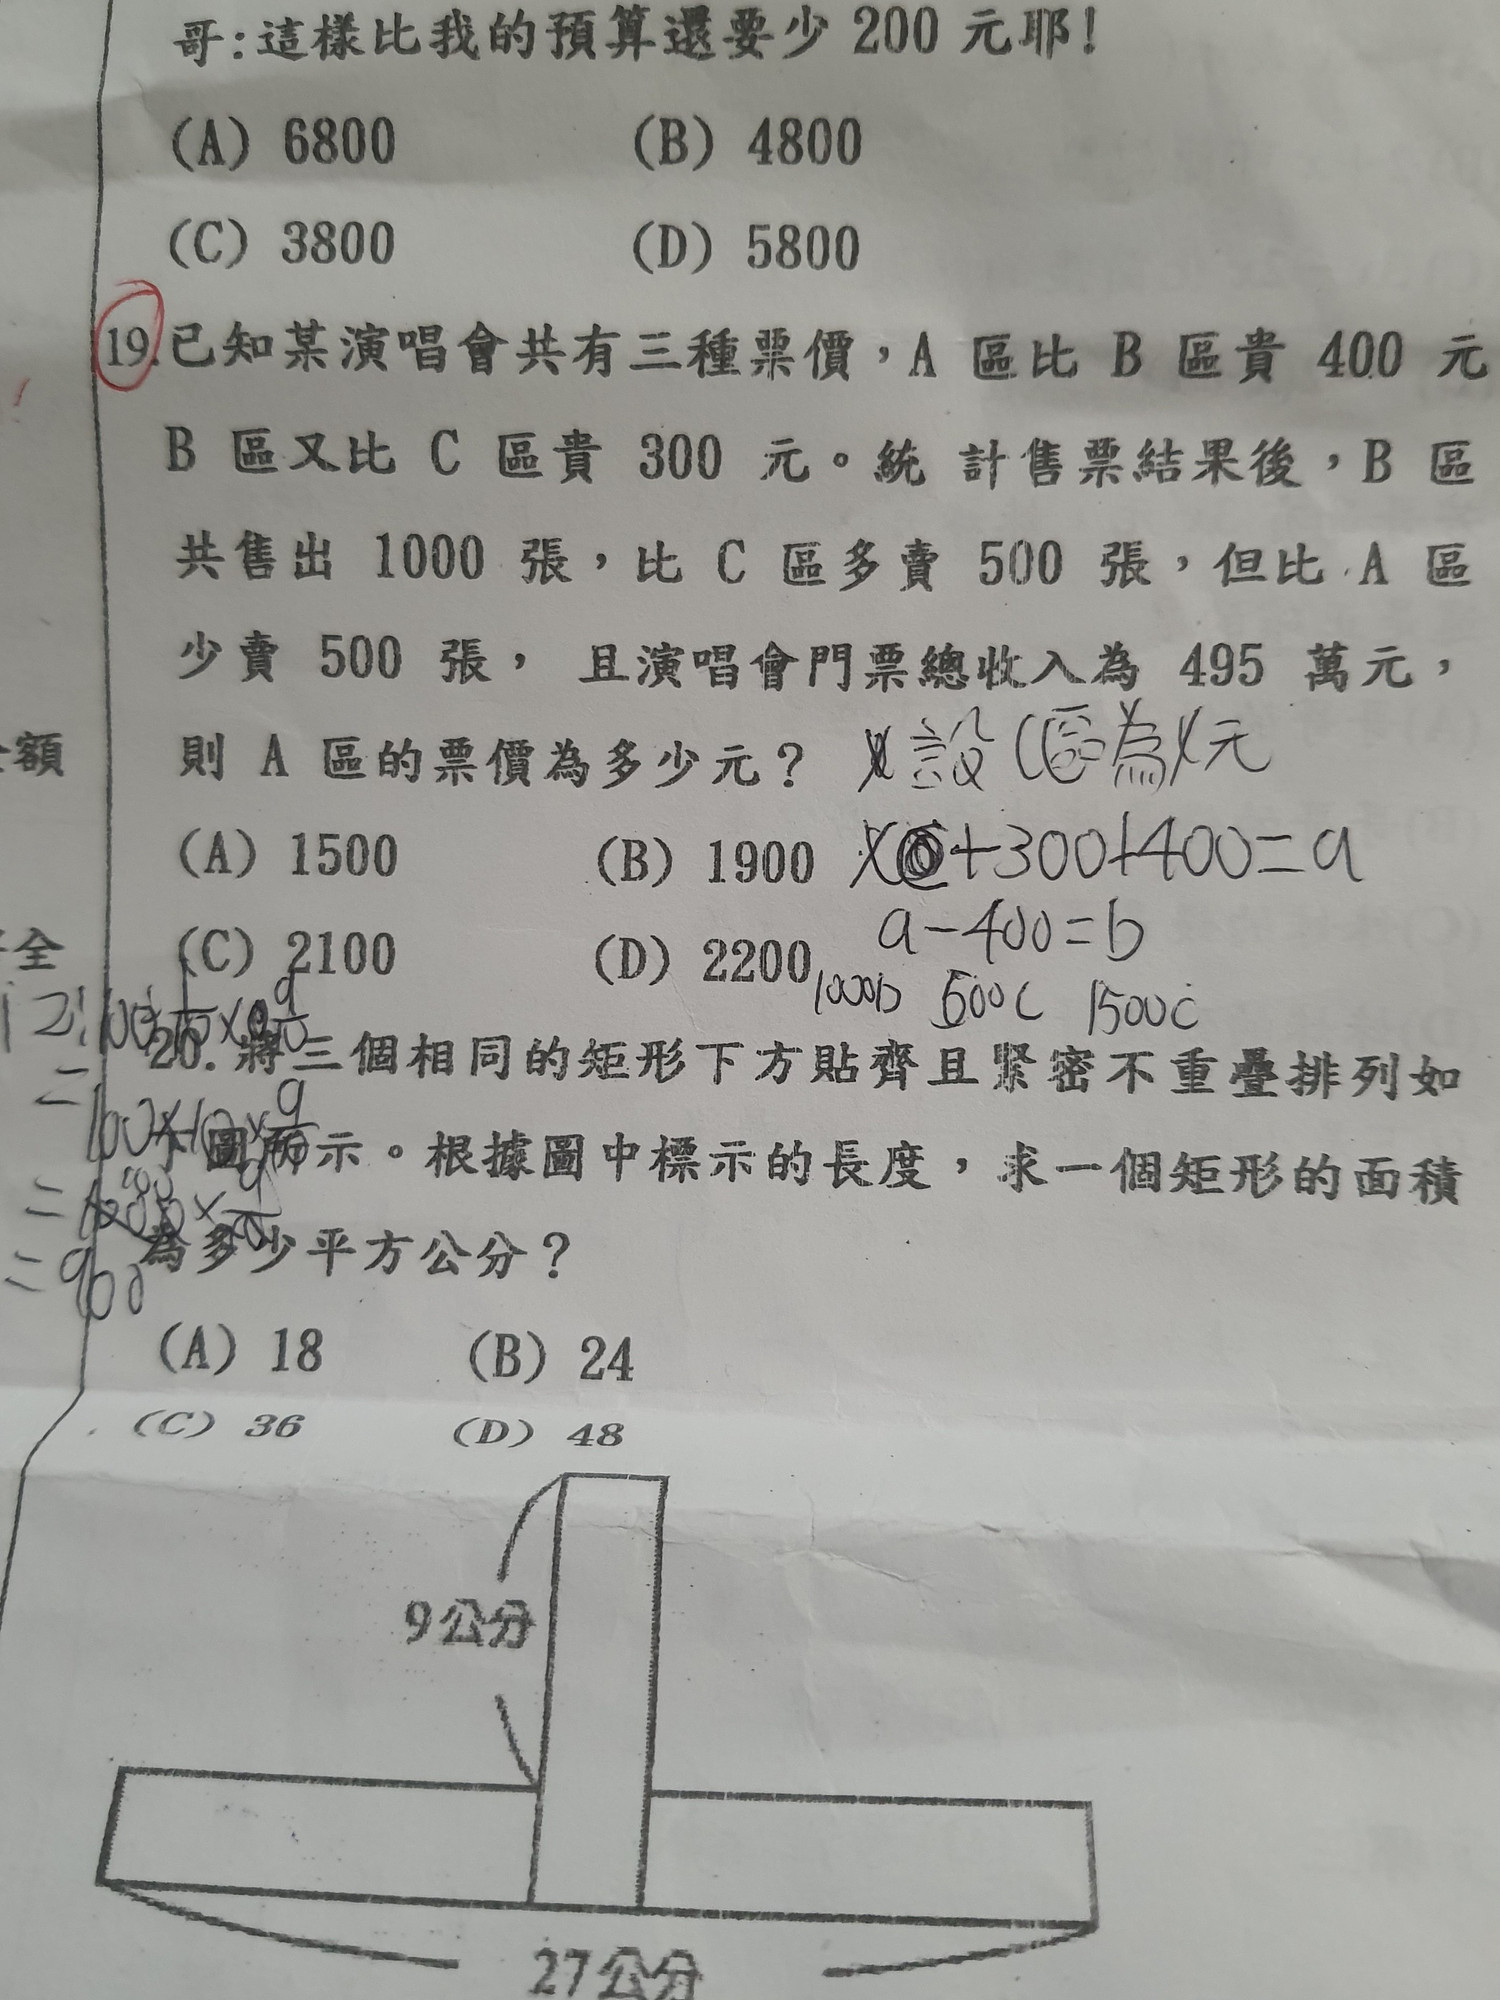 哥:這樣比我的預算還要少 200 元耶!
(A) 6800 (B) 4800
(C) 3800 (D) 5800
19.已知某演唱會共有三種票價，A 區比 B 區貴 400 元
B 區又比 C 區貴 300 元。統 計售票結果後，B 區
共售出 1000 張，比 C 區多賣 500 張，但比 A 區
少賣 500 張， 且演唱會門票總收入為 495 萬元，
額
則 A 區的票價為多少元? 設C區為X元
(A) 1500 (B) 1900 X+300+400=a
全
(C) 2100 (D) 2200 a-400=b
1000b 500c 1500c
20.將三個相同的矩形下方貼齊且緊密不重疊排列如
下圖所示。根據圖中標示的長度，求一個矩形的面積
為多少平方公分?
=900
(A) 18 (B) 24
(C) 36 (D) 48
9公分
27公分